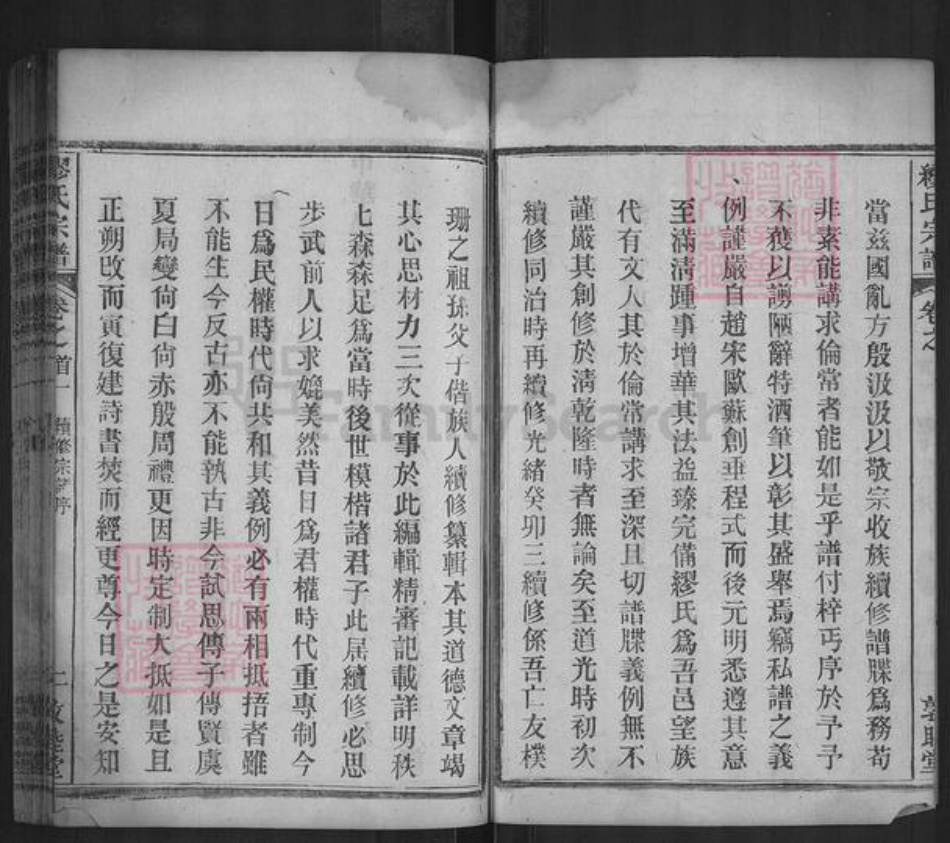 當兹國亂方殷汲汲以敬宗收族續修譜牒爲務苟
非素能講求倫常者能如是乎譜付梓丐序於予予
不獲以謭陋辭特洒筆以彰其盛舉焉竊私譜之義
例謹嚴自趙宋歐蘇創垂程式而後元明悉遵其意
至滿淸踵事增華其法益臻完備繆氏爲吾邑望族
代有文人其於倫常講求至深且切譜牒義例無不
謹嚴其創修於淸乾隆時者無論矣至道光時初次
續修同治時再續修光緒癸卯三續修係吾亡友樸
珊之祖孫父子偕族人續修纂輯本其道德文章竭
其心思材力三次從事於此編輯精審記載詳明秩
上森森足爲當時後世模楷諸君子此居續修必思
步武前人以求媲美然昔日爲君權時代重專制今
日爲民權時代尙共和其義例必有兩相抵捂者雖
不能生今反古亦不能執古非今試思傳子傳賢虞
夏局變尙白尙赤殷周禮更因時定制大抵如是且
正朔改而寅復建詩書焚而經更尊今日之是安知
繆氏宗譜
卷之首一
續修宗譜序
二
敦睦堂
FamilySearch